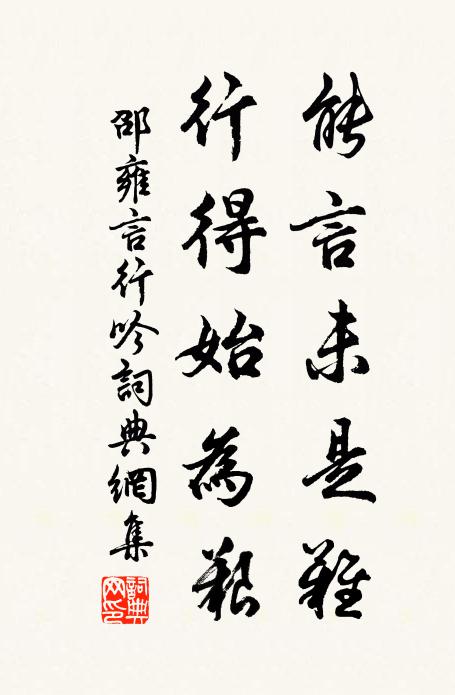 能言未是難
行得始為艱
邵雍言行吟詞典網集
詞典網印